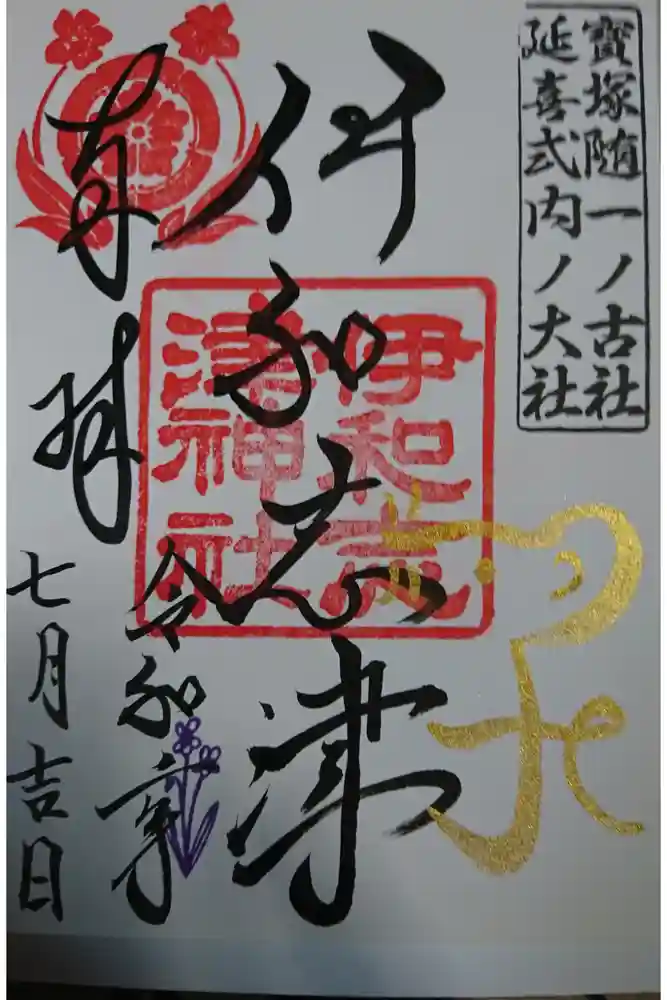 寶塚随一ノ古社
延喜式内ノ大社
伊和志津
伊和志
津神社
奉拝
令和二年
七月吉日